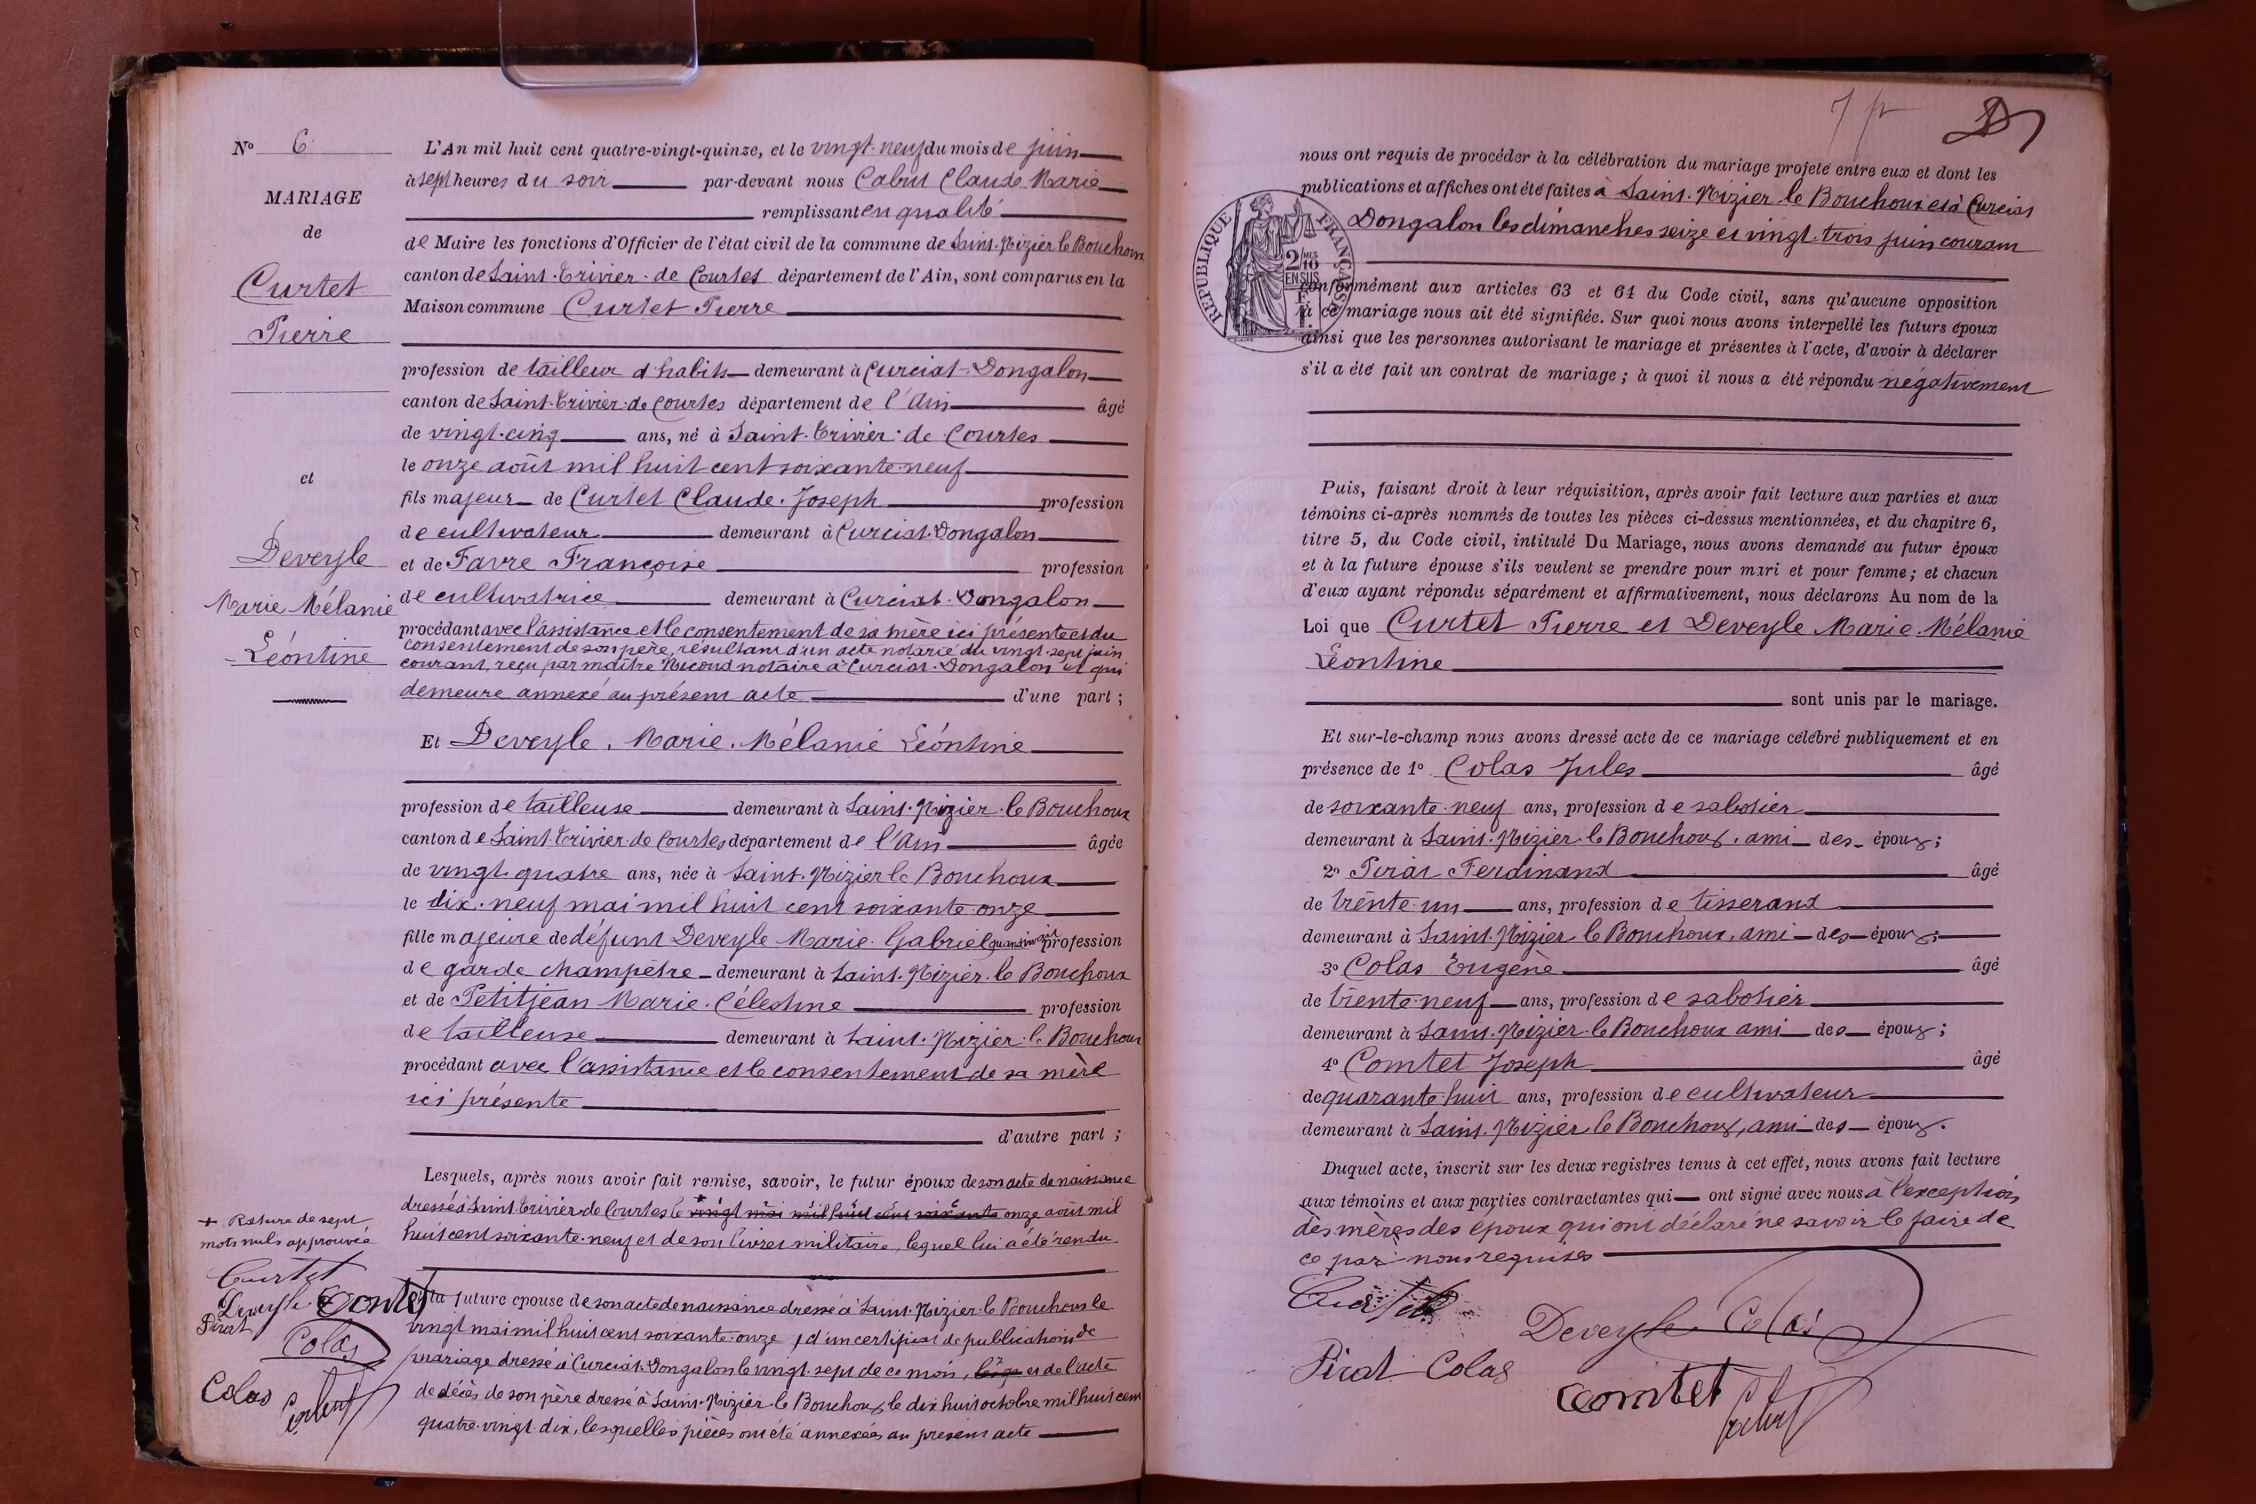 Nº 6
MARIAGE
de
Curtet
Pierre
et
Deveyle
Marie Mélanie
Léontine
L'An mil huit cent quatre-vingt-quinze, et le vingt-neuf du mois de juin
à sept heures du soir par-devant nous Cabut Claude Marie
remplissant en qualité
de Maire les fonctions d'Officier de l'état civil de la commune de Saint-Nizier le Bouchoux
canton de Saint-Trivier-de Courtes département de l'Ain, sont comparus en la
Maison commune Curtet Pierre
profession de tailleur d'habits demeurant à Curciat-Dongalon
canton de Saint-Trivier-de Courtes département de l'Ain âgé
de vingt-cinq ans, né à Saint-Trivier-de Courtes
le onze août mil huit cent soixante-neuf
fils majeur de Curtet Claude-Joseph profession
de cultivateur demeurant à Curciat-Dongalon
et de Favre Françoise profession
de cultivatrice demeurant à Curciat-Dongalon
procédant avec l'assistance et le consentement de sa mère ici présente et du
consentement de son père, résultant d'un acte notarié du vingt-sept juin
courant, reçu par maître notaire à Curciat-Dongalon et qui
demeure annexé au présent acte d'une part ;
Et Deveyle, Marie, Mélanie Léontine
profession de tailleuse demeurant à Saint-Nizier-le Bouchoux
canton de Saint Trivier-de Courtes département de l'Ain âgée
de vingt-quatre ans, née à Saint-Nizier le Bouchoux
le dix-neuf mai mil huit cent soixante-onze
fille majeure de défunt Deveyle Marie-Gabriel quand vivait profession
de garde champêtre demeurant à Saint-Nizier-le Bouchoux
et de Petitjean Marie-Célestine profession
de tailleuse demeurant à Saint-Nizier-le Bouchoux
procédant avec l'assistance et le consentement de sa mère
ici présente
d'autre part ;
Lesquels, après nous avoir fait remise, savoir, le futur époux de son acte de naissance
dressé à Saint Trivier-de Courtes le + vingt mai mil huit cent soixante onze août mil
huit cent soixante-neuf et de son livret militaire, lequel lui a été rendu
et la future épouse de son acte de naissance dressé à Saint-Nizier-le Bouchoux le
vingt mai mil huit cent soixante-onze, d'un certificat de publications de
mariage dressé à Curciat-Dongalon le vingt-sept de ce mois, et de l'acte
de décès de son père dressé à Saint-Nizier-le Bouchoux, le dix huit octobre mil huit cent
quatre-vingt-dix, lesquelles pièces ont été annexées au présent acte
+ Rature de sept
mots nuls approuvée
Curtet
Deveyle Comtet
Pirat
Colas
Colas Cabut
nous ont requis de procéder à la célébration du mariage projeté entre eux et dont les
publications et affiches ont été faites à Saint-Nizier-le Bouchoux et à Curciat
Dongalon les dimanches seize et vingt-trois juin courant
RÉPUBLIQUE FRANÇAISE
2/10 EN SUS
conformément aux articles 63 et 64 du Code civil, sans qu'aucune opposition
à ce mariage nous ait été signifiée. Sur quoi nous avons interpellé les futurs époux
ainsi que les personnes autorisant le mariage et présentes à l'acte, d'avoir à déclarer
s'il a été fait un contrat de mariage ; à quoi il nous a été répondu négativement
Puis, faisant droit à leur réquisition, après avoir fait lecture aux parties et aux
témoins ci-après nommés de toutes les pièces ci-dessus mentionnées, et du chapitre 6,
titre 5, du Code civil, intitulé Du Mariage, nous avons demandé au futur époux
et à la future épouse s'ils veulent se prendre pour mari et pour femme ; et chacun
d'eux ayant répondu séparément et affirmativement, nous déclarons Au nom de la
Loi que Curtet Pierre et Deveyle Marie-Mélanie
Léontine
sont unis par le mariage.
Et sur-le-champ nous avons dressé acte de ce mariage célébré publiquement et en
présence de 1º Colas Jules âgé
de soixante-neuf ans, profession de sabotier
demeurant à Saint-Nizier-le Bouchoux, ami des époux ;
2º Pirat Ferdinand âgé
de trente-un ans, profession de tisserand
demeurant à Saint-Nizier le Bouchoux, ami des époux ;
3º Colas Eugène âgé
de trente-neuf ans, profession de sabotier
demeurant à Saint-Nizier-le Bouchoux ami des époux ;
4º Comtet Joseph âgé
de quarante-huit ans, profession de cultivateur
demeurant à Saint-Nizier le Bouchoux, ami des époux.
Duquel acte, inscrit sur les deux registres tenus à cet effet, nous avons fait lecture
aux témoins et aux parties contractantes qui ont signé avec nous à l'exception
des mères des époux qui ont déclaré ne savoir le faire de
ce par nous requises
Curtet
Deveyle Colas
Pirat Colas
Comtet Cabut